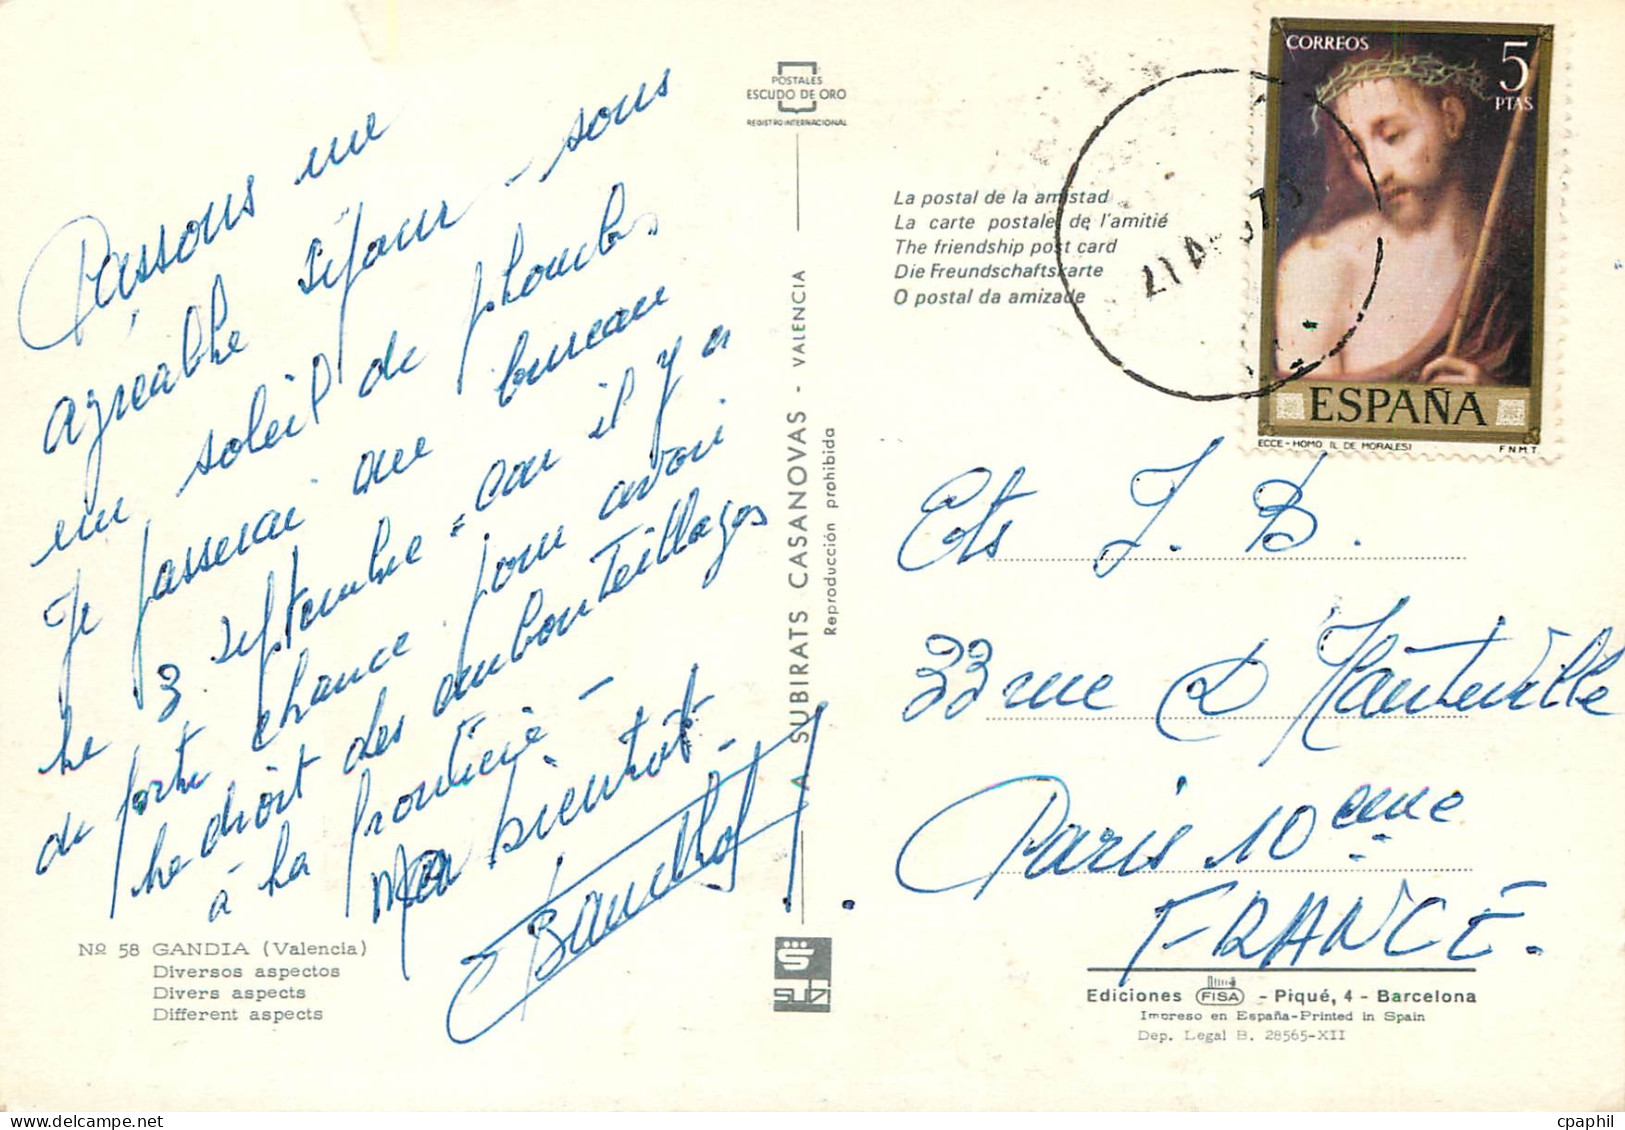 Passons une
agréable séjour - sous
un soleil de plombs
Je passerai au bureau
le 3 septembre - car il y a
de forte chance pour avoir
le droit des embouteillages
à la frontière -
bientôt -
Nº 58 GANDIA (Valencia)
Diversos aspectos
Divers aspects
Different aspects
POSTALES
ESCUDO DE ORO
REGISTRO INTERNACIONAL
A. SUBIRATS CASANOVAS - VALENCIA
Reproducción prohibida
La postal de la amistad
La carte postale de l'amitié
The friendship post card
Die Freundschaftskarte
O postal da amizade
CORREOS
5
PTAS
ESPAÑA
ECCE-HOMO (L. DE MORALES)
F.N.M.T.
Ets J. B.
33 rue d'Hauteville
Paris 10eme
FRANCE.
Ediciones FISA - Piqué, 4 - Barcelona
Impreso en España-Printed in Spain
Dep. Legal B. 28565-XII
cpaphil